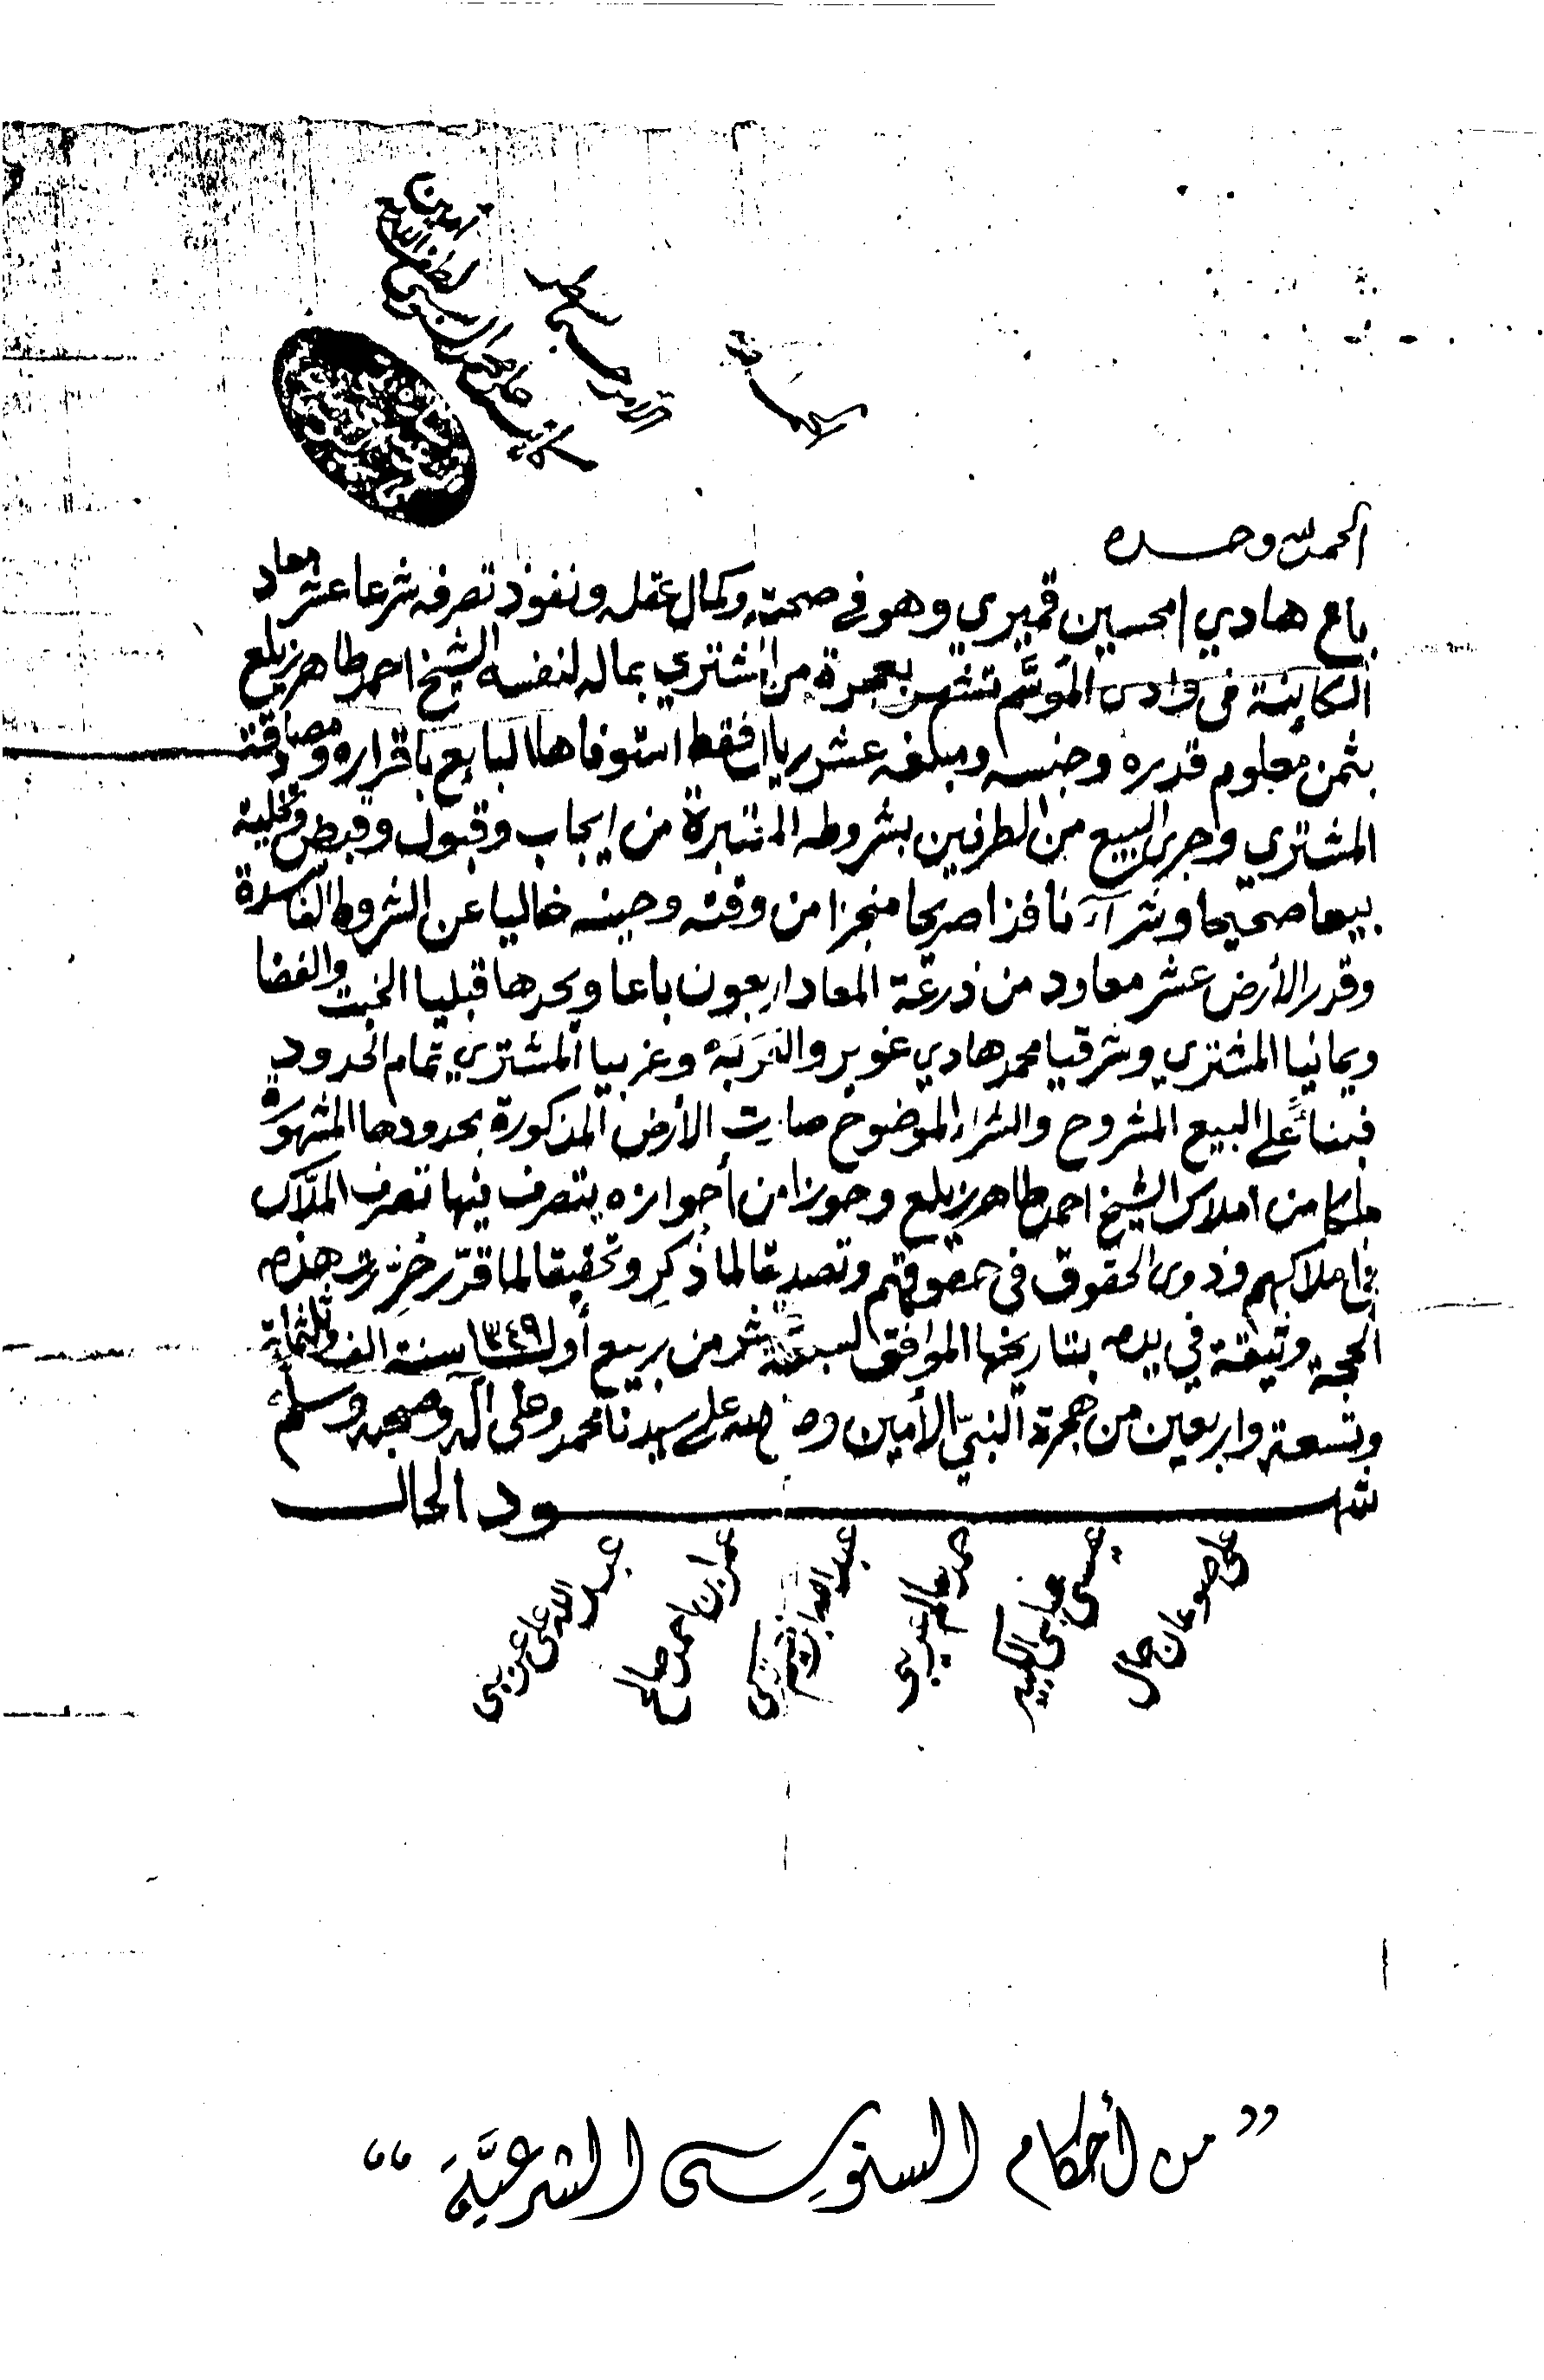 الحمد لله وحده
باع هادي امحسين قميري وهو في صحته وكمال عقله ونفوذ تصرفه شرعا عشر معاد
الكاينة في وادي الموسَّم تشهر بعمرة من اشتري بماله لنفسه الشيخ احمد طاهر زيلع
بثمن معلوم قدره وجنسه ومبلغه عشر ريال فقط استوفاها البايع باقراره ومصادقة
المشتري وجرى البيع من الطرفين بشروطه المعتبرة من ايجاب وقبول وقبض وتخلية
بيعا صحيحا وشرآء نافذا صريحا منجزا من وقته وحينه خاليا عن الشروط الفاسدة
وقدر الأرض عشر معاود من ذرعة المعاد اربعون باعا ويحدها قبليا الخبت والفضا
ويمانيا المشتري وشرقيا محمد هادي غوير والخربه وغربيا المشتري تمام الحدود
فبناءً على البيع المشروح والشراء الموضوح صارت الأرض المذكورة بحدودها المشهورة
ملكا من املاك الشيخ احمد طاهر زيلع وحوزا من أحوازه يتصرف فيها تصرف الملّاك
في املاكهم وذوى الحقوق في حقوقهم وتصديقا لما ذُكر وتحقيقا لما قرّر حُررت هذه
الحجة وثيقة في يده بتاريخها الموافق لسبعة عشر من ربيع أول ١٣٤٩ سنة الف وثلثماية
وتسعة واربعين من هجرة النبيّ الأمين وصلى الله على سيدنا محمد وعلى آله وصحبه وسلم
شهود الحال
على صومان
عيسى
عبد الله على عريبى
عمر بن احمد صالح
”من أحكام السنوسى الشرعيَّة“